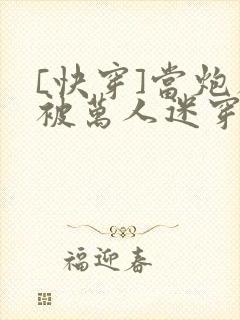 [快穿]當炮
被萬人迷穿
福迎春